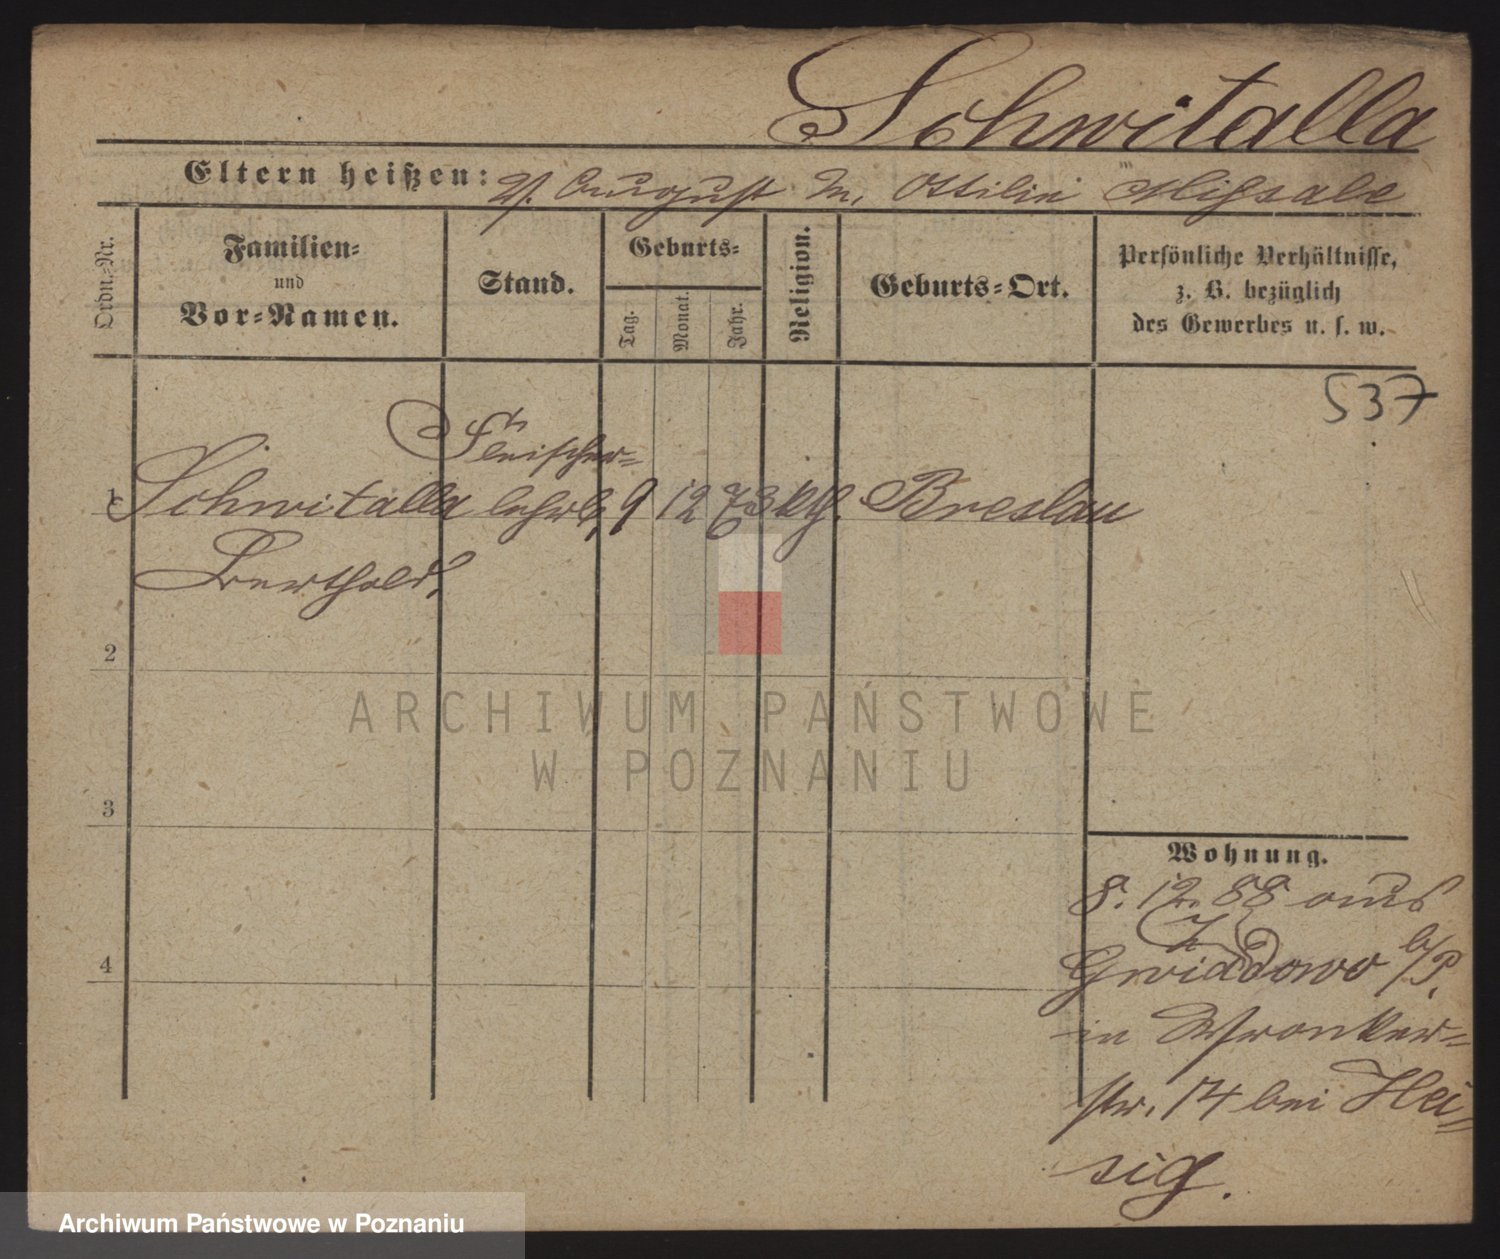 Schwitalla
Eltern heißen: V. August M. Ottilie
Ordn.-Nr.
Familien-
und
Vor-Namen.
Stand.
Geburts-
Tag.
Monat.
Jahr.
Religion.
Geburts-Ort.
Persönliche Verhältnisse,
z. B. bezüglich
des Gewerbes u. s. w.
537
Fleischer-
1 Schwitalla lehrl, 9 12 73 kth. Breslau
Berthold,
2
3
4
Wohnung.
8. 12. 88 aus
b/P.
in Wronker-
str. 14 bei Hei-
sig.
ARCHIWUM PAŃSTWOWE
W POZNANIU
Archiwum Państwowe w Poznaniu